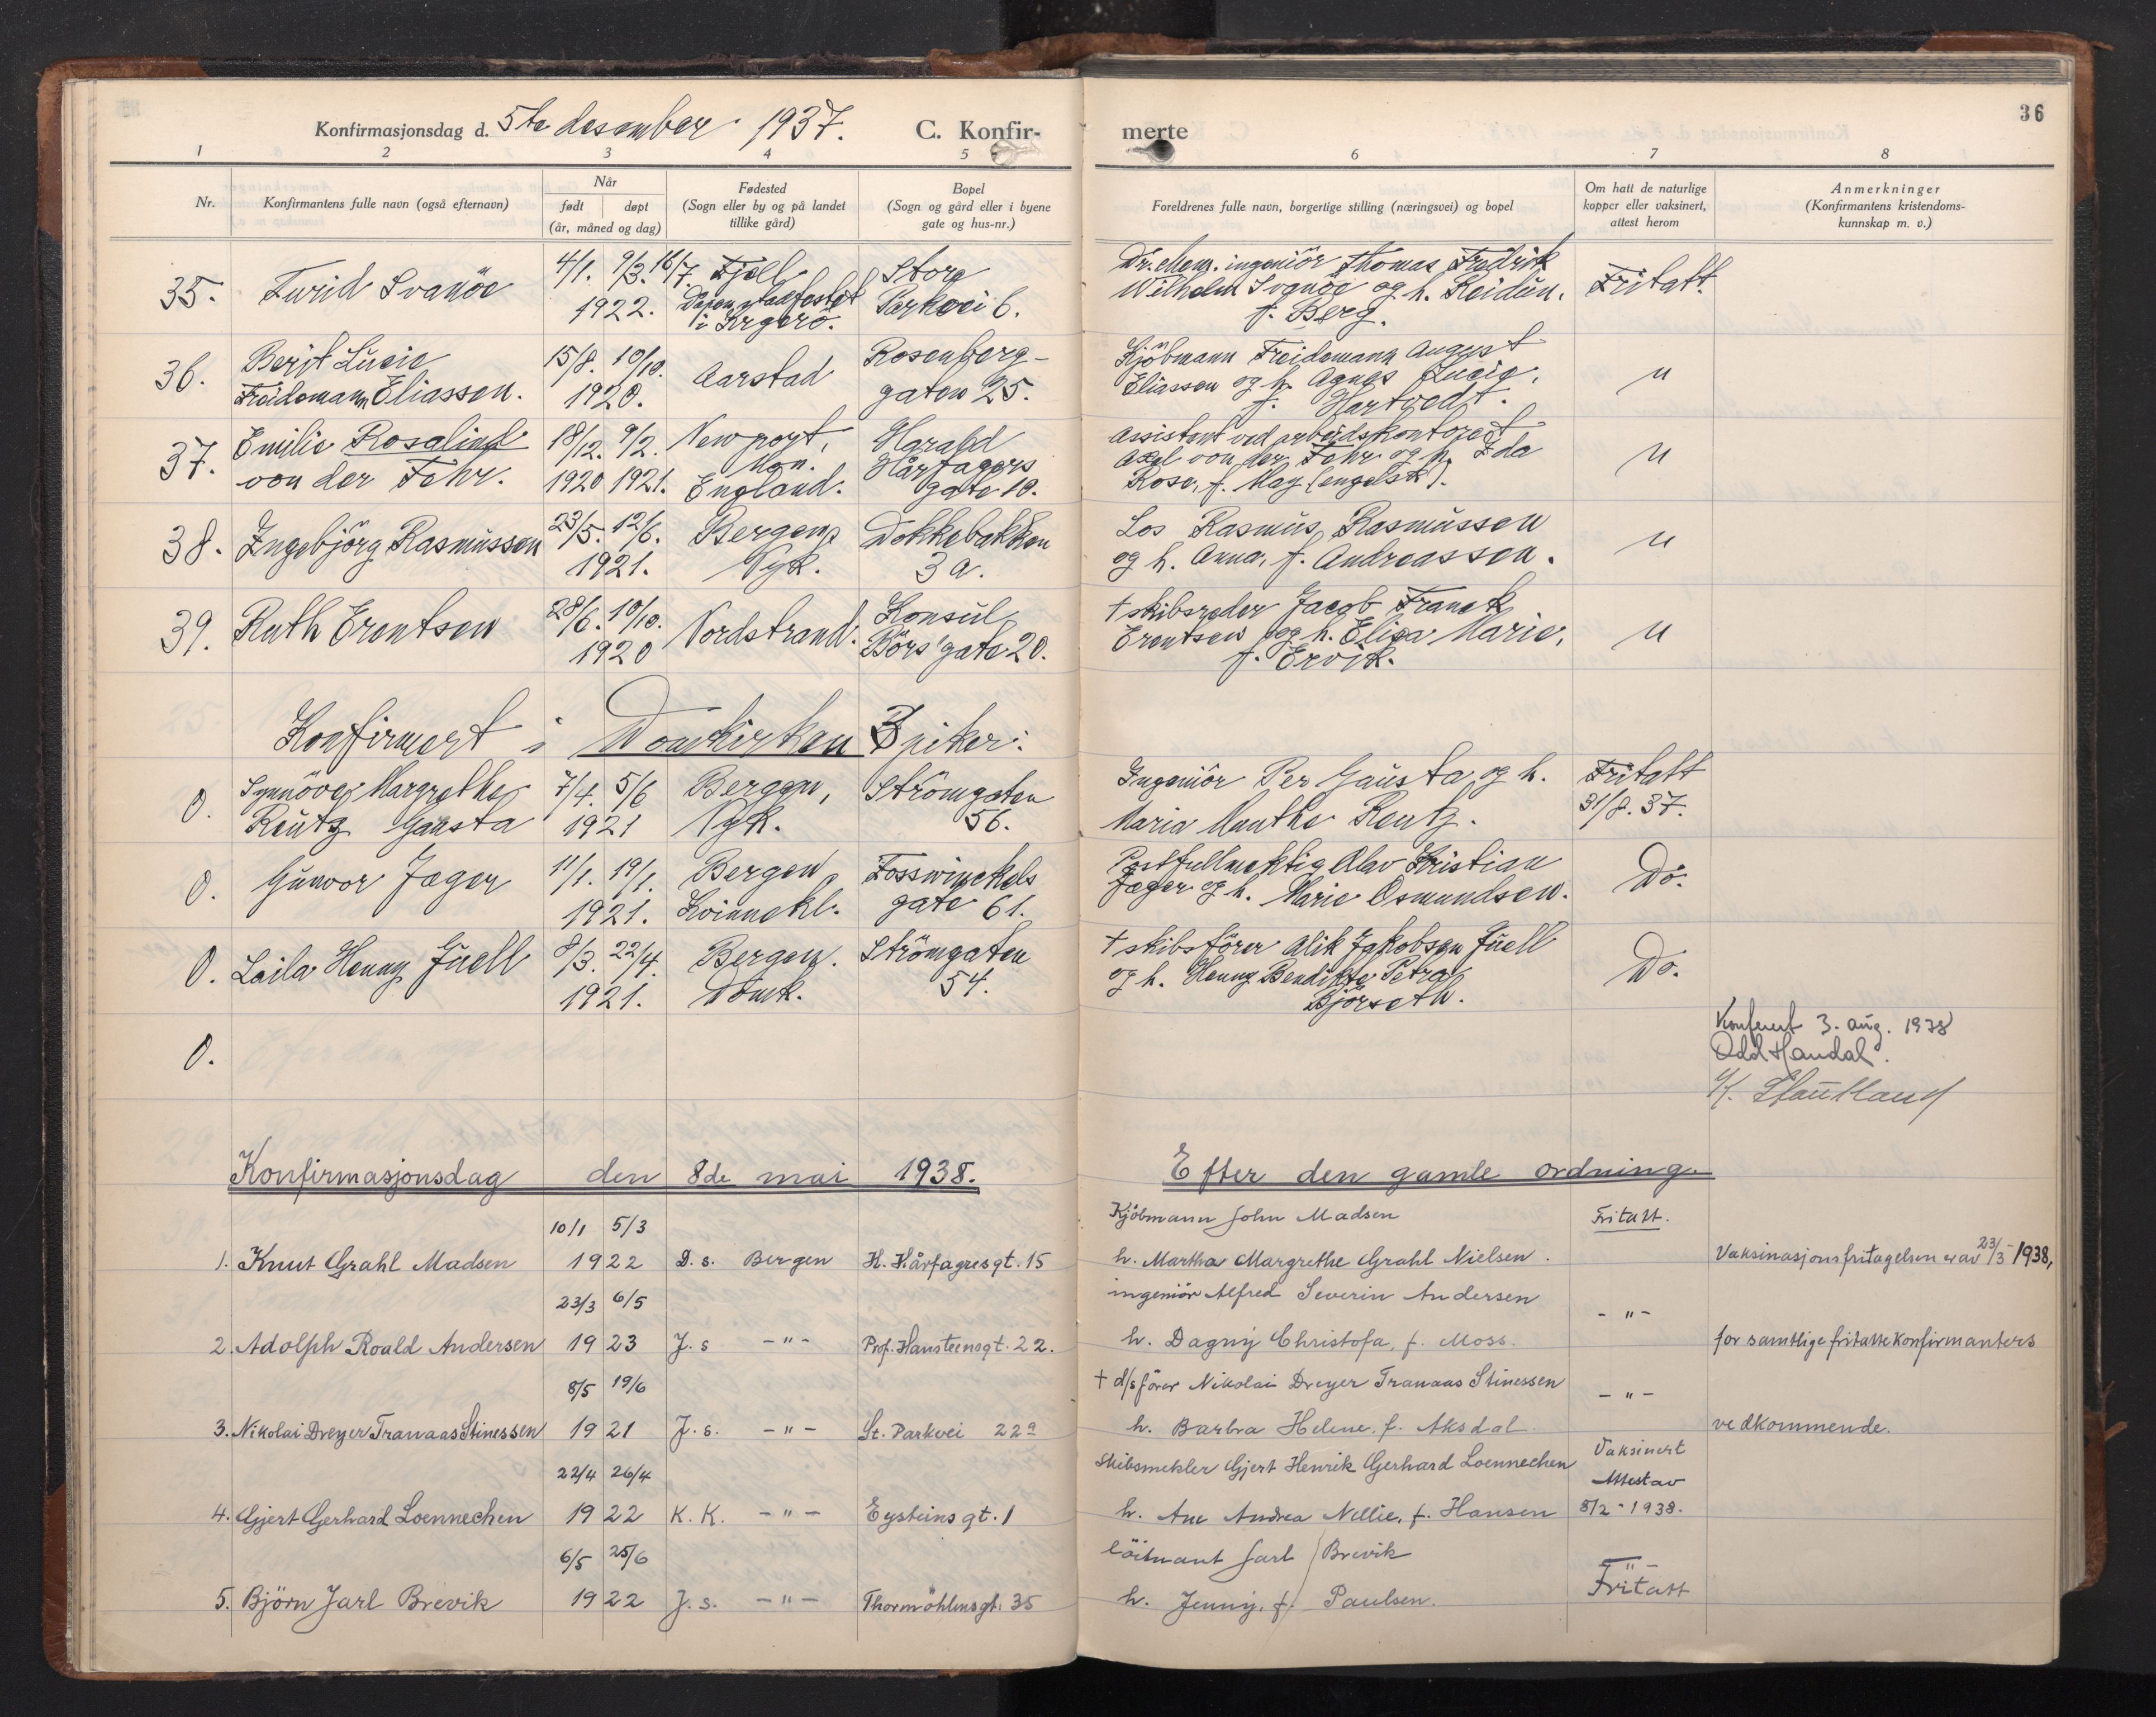 36
Konfirmasjonsdag d. 5te desember 1937. C. Konfir-
merte
1 2 3 4 5 6 7 8
Nr.
Konfirmantens fulle navn (også efternavn)
Når
født døpt
(år, måned og dag)
Fødested
(Sogn eller by og på landet
tillike gård)
Bopel
(Sogn og gård eller i byene
gate og hus-nr.)
Foreldrenes fulle navn, borgertige stilling (næringsvei) og bopel
Om hatt de naturlige
kopper eller vaksinert,
attest herom
Anmerkninger
(Konfirmantens kristendoms-
kunnskap m. v.)
35. Turid Svanöe
4/1. 9/3. 16/7
1922.
Fjell
i Kragerö.
Store
Parkvei 6.
ingeniör Thomas Fredrik
Wilhelm Svanöe og h. Reidun,
f. Berg.
Fritatt.
36. Berit Lucie
Freidemann Eliassen.
15/8. 10/10.
1920.
Aarstad
Rosenberg-
gaten 25.
Kjöbmann Freidemann August
Eliassen og h. Agnes Lucie,
f. Hartvedt.
"
37. Emilie Rosalind
von der Fehr.
18/12. 9/2.
1920 1921.
Newport,
Mon.
England.
Harald
Hårfagers
gate 10.
Assistent ved arbeidskontoret
Axel von der Fehr og h. Ida
Rose, f. May (engelsk).
"
38. Ingebjörg Rasmussen
23/5. 12/6.
1921.
Bergen,
Nyk.
Dokkebakken
3 a.
Los Rasmus Rasmussen
og h. Anna, f. Andreassen.
"
39. Ruth Erentsen
28/6. 10/10.
1920
Nordstrand.
Konsul
Börs' gate 20.
† skibsreder Jacob Franck
Erentsen og h. Elisa Marie,
f. Ervik.
"
Konfirmert i Domkirken 3 piker:
0. Synnöve Margrethe
Reutz Gausta
7/4. 5/6
1921
Bergen,
Nyk.
Strömgaten
56.
Ingeniör Per Gausta og h.
Maria Munthe Reutz.
Fritatt
31/8. 37.
0. Gunvor Jæger
11/1. 19/1.
1921.
Bergen
Kvinnekl.
Fosswinckels
gate 61.
Postfullmektig Olav Kristian
Jæger og h. Marie Osmundsen.
Do.
0. Laila Henny Juell
8/3. 22/4.
1921.
Bergen.
Domk.
Strömgaten
54.
† skibsförer Alik Jakobsen Juell
og h. Henny Bendikte Petra
Björseth.
Do.
0.
Konferert 3. aug. 1938
Odd Handal.
Konfirmasjonsdag den 8de mai 1938.
Efter den gamle ordning.
1. Knut Grahl Madsen
10/1 5/3
1922
D. s. Bergen
H. Hårfagresgt. 15
Kjöbmann John Madsen
h. Martha Margrethe Grahl Nielsen.
Fritatt.
Vaksinasjonsfritagelsen er av 23/3 - 1938,
2. Adolph Roald Andersen
23/3 6/5
1923
J. s -"-
Prof. Hansteensgt. 22.
ingeniör Alfred Severin Andersen
h. Dagny Christofa, f. Moss.
-"-
for samtlige fritatte konfirmanters
3. Nikolai Dreyer Tranaas Stinessen
8/5 19/6
1921
J. s. -"-
St. Parkvei 22a
† d/s förer Nikolai Dreyer Tranaas Stinessen
h. Barbra Helene, f. Aksdal.
-"-
vedkommende.
4. Gjert Gerhard Loennechen
22/4 26/4
1922
K. K. -"-
Eysteins gt. 1
Skibsmekler Gjert Henrik Gerhard Loennechen
h. Ane Andrea Nellie, f. Hansen
Vaksinert
Attest av
8/2 - 1938.
5. Björn Jarl Brevik
6/5 25/6
1922
J. s. -"-
Thormöhlensgt. 35
löitnant Jarl Brevik
h. Jenny, f. Paulsen.
Fritatt